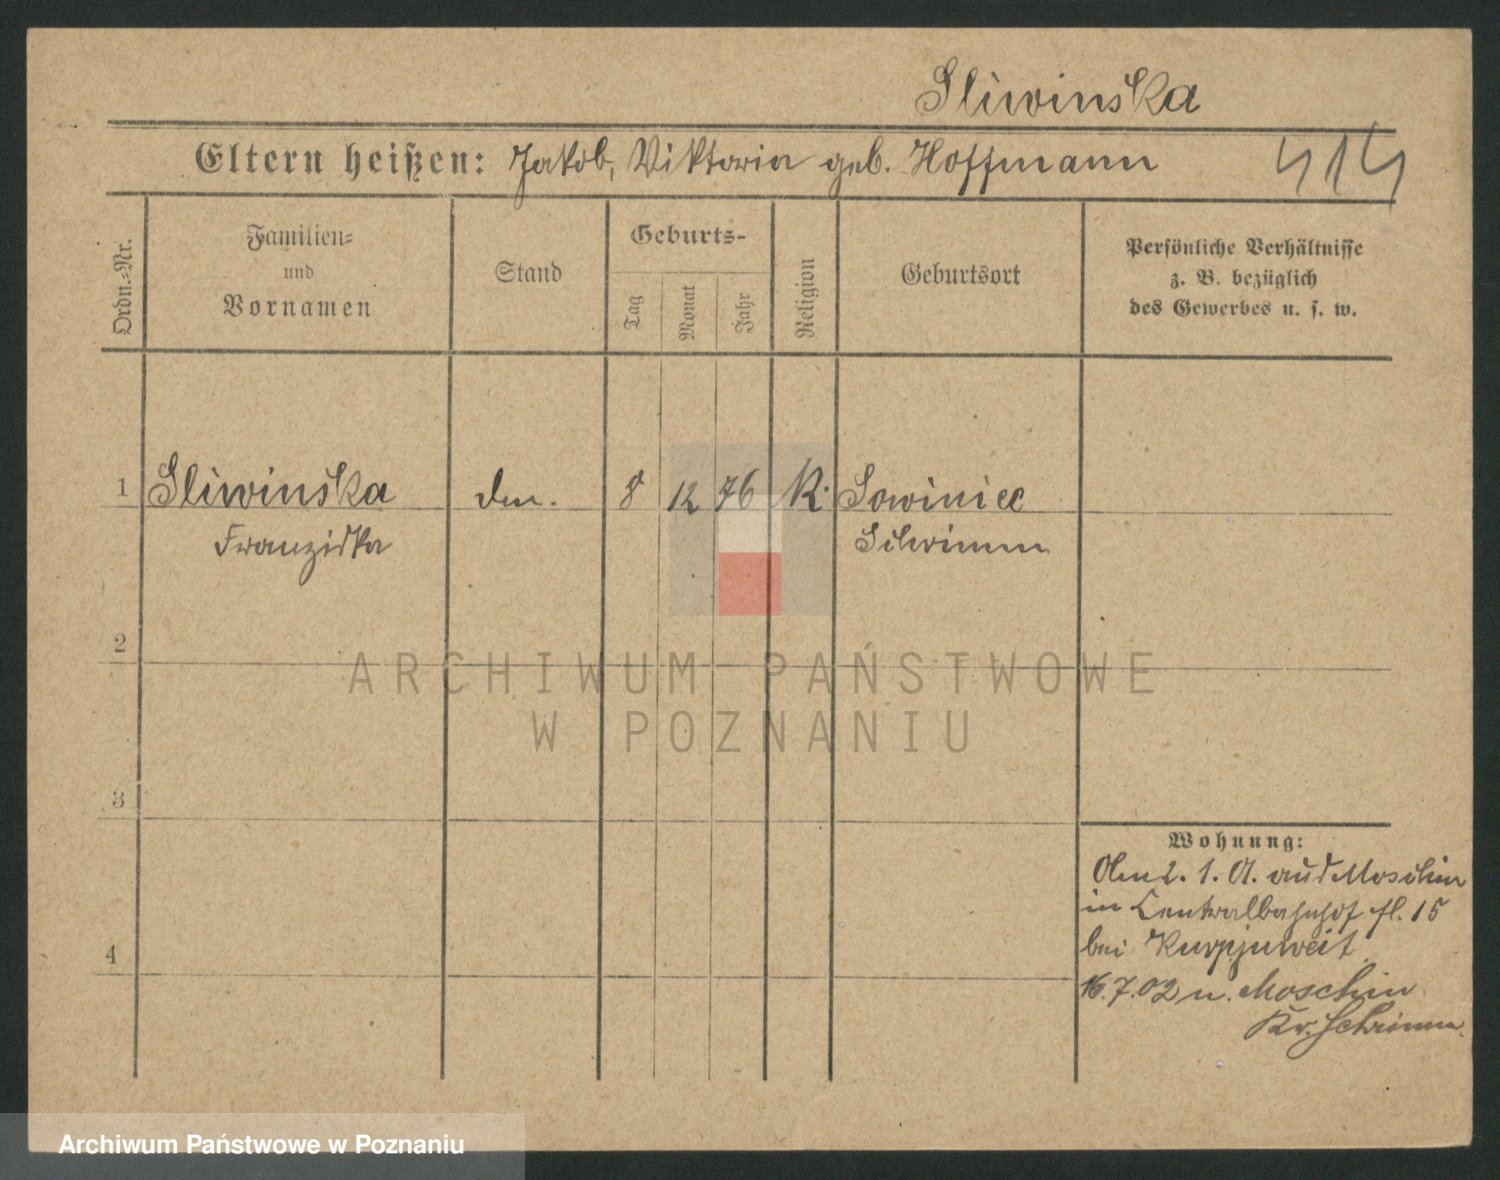 Sliwinska
Eltern heißen: Jakob, Viktoria geb. Hoffmann 414
Ordn.-Nr.
Familien-
und
Vornamen
Stand
Geburts-
Tag
Monat
Jahr
Religion
Geburtsort
Persönliche Verhältnisse
z. B. bezüglich
des Gewerbes u. s. w.
1 Sliwinska 8 12 76 K. Sowiniec
Franziska Schrimm
2
ARCHIWUM PAŃSTWOWE
W POZNANIU
3
Wohnung:
1. aus Moschin
in Centralbahnhof 15
4
bei
16.7.02 n. Moschin
Kr. Schrimm.
Archiwum Państwowe w Poznaniu